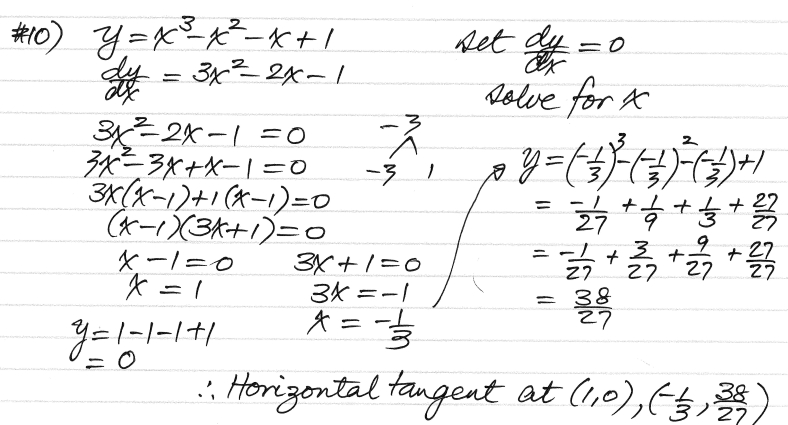 #10) y = x³ - x² - x + 1
dy/dx = 3x² - 2x - 1
set dy/dx = 0
solve for x
3x² - 2x - 1 = 0
-3
3x² - 3x + x - 1 = 0
-3 1
3x(x-1)+1(x-1)=0
(x-1)(3x+1)=0
x - 1 = 0 3x + 1 = 0
x = 1 3x = -1
x = -1/3
y = 1-1-1+1
= 0
y = (-1/3)³ - (-1/3)² - (-1/3) + 1
= -1/27 + 1/9 + 1/3 + 27/27
= -1/27 + 3/27 + 9/27 + 27/27
= 38/27
∴ Horizontal tangent at (1,0), (-1/3, 38/27)